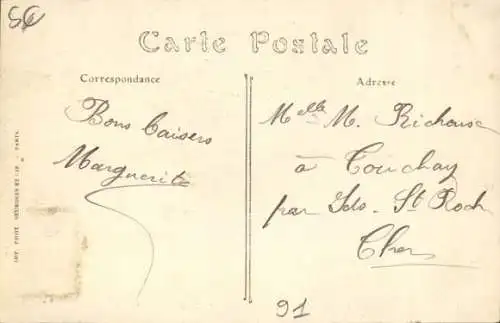 Carte Postale
Correspondance
Adresse
Bons baisers
Marguerite
Melle M. Richouse
à Touchay
par Ids-St Roch
Cher
91
IMP. PHOT. NEURDEIN ET CIE PARIS